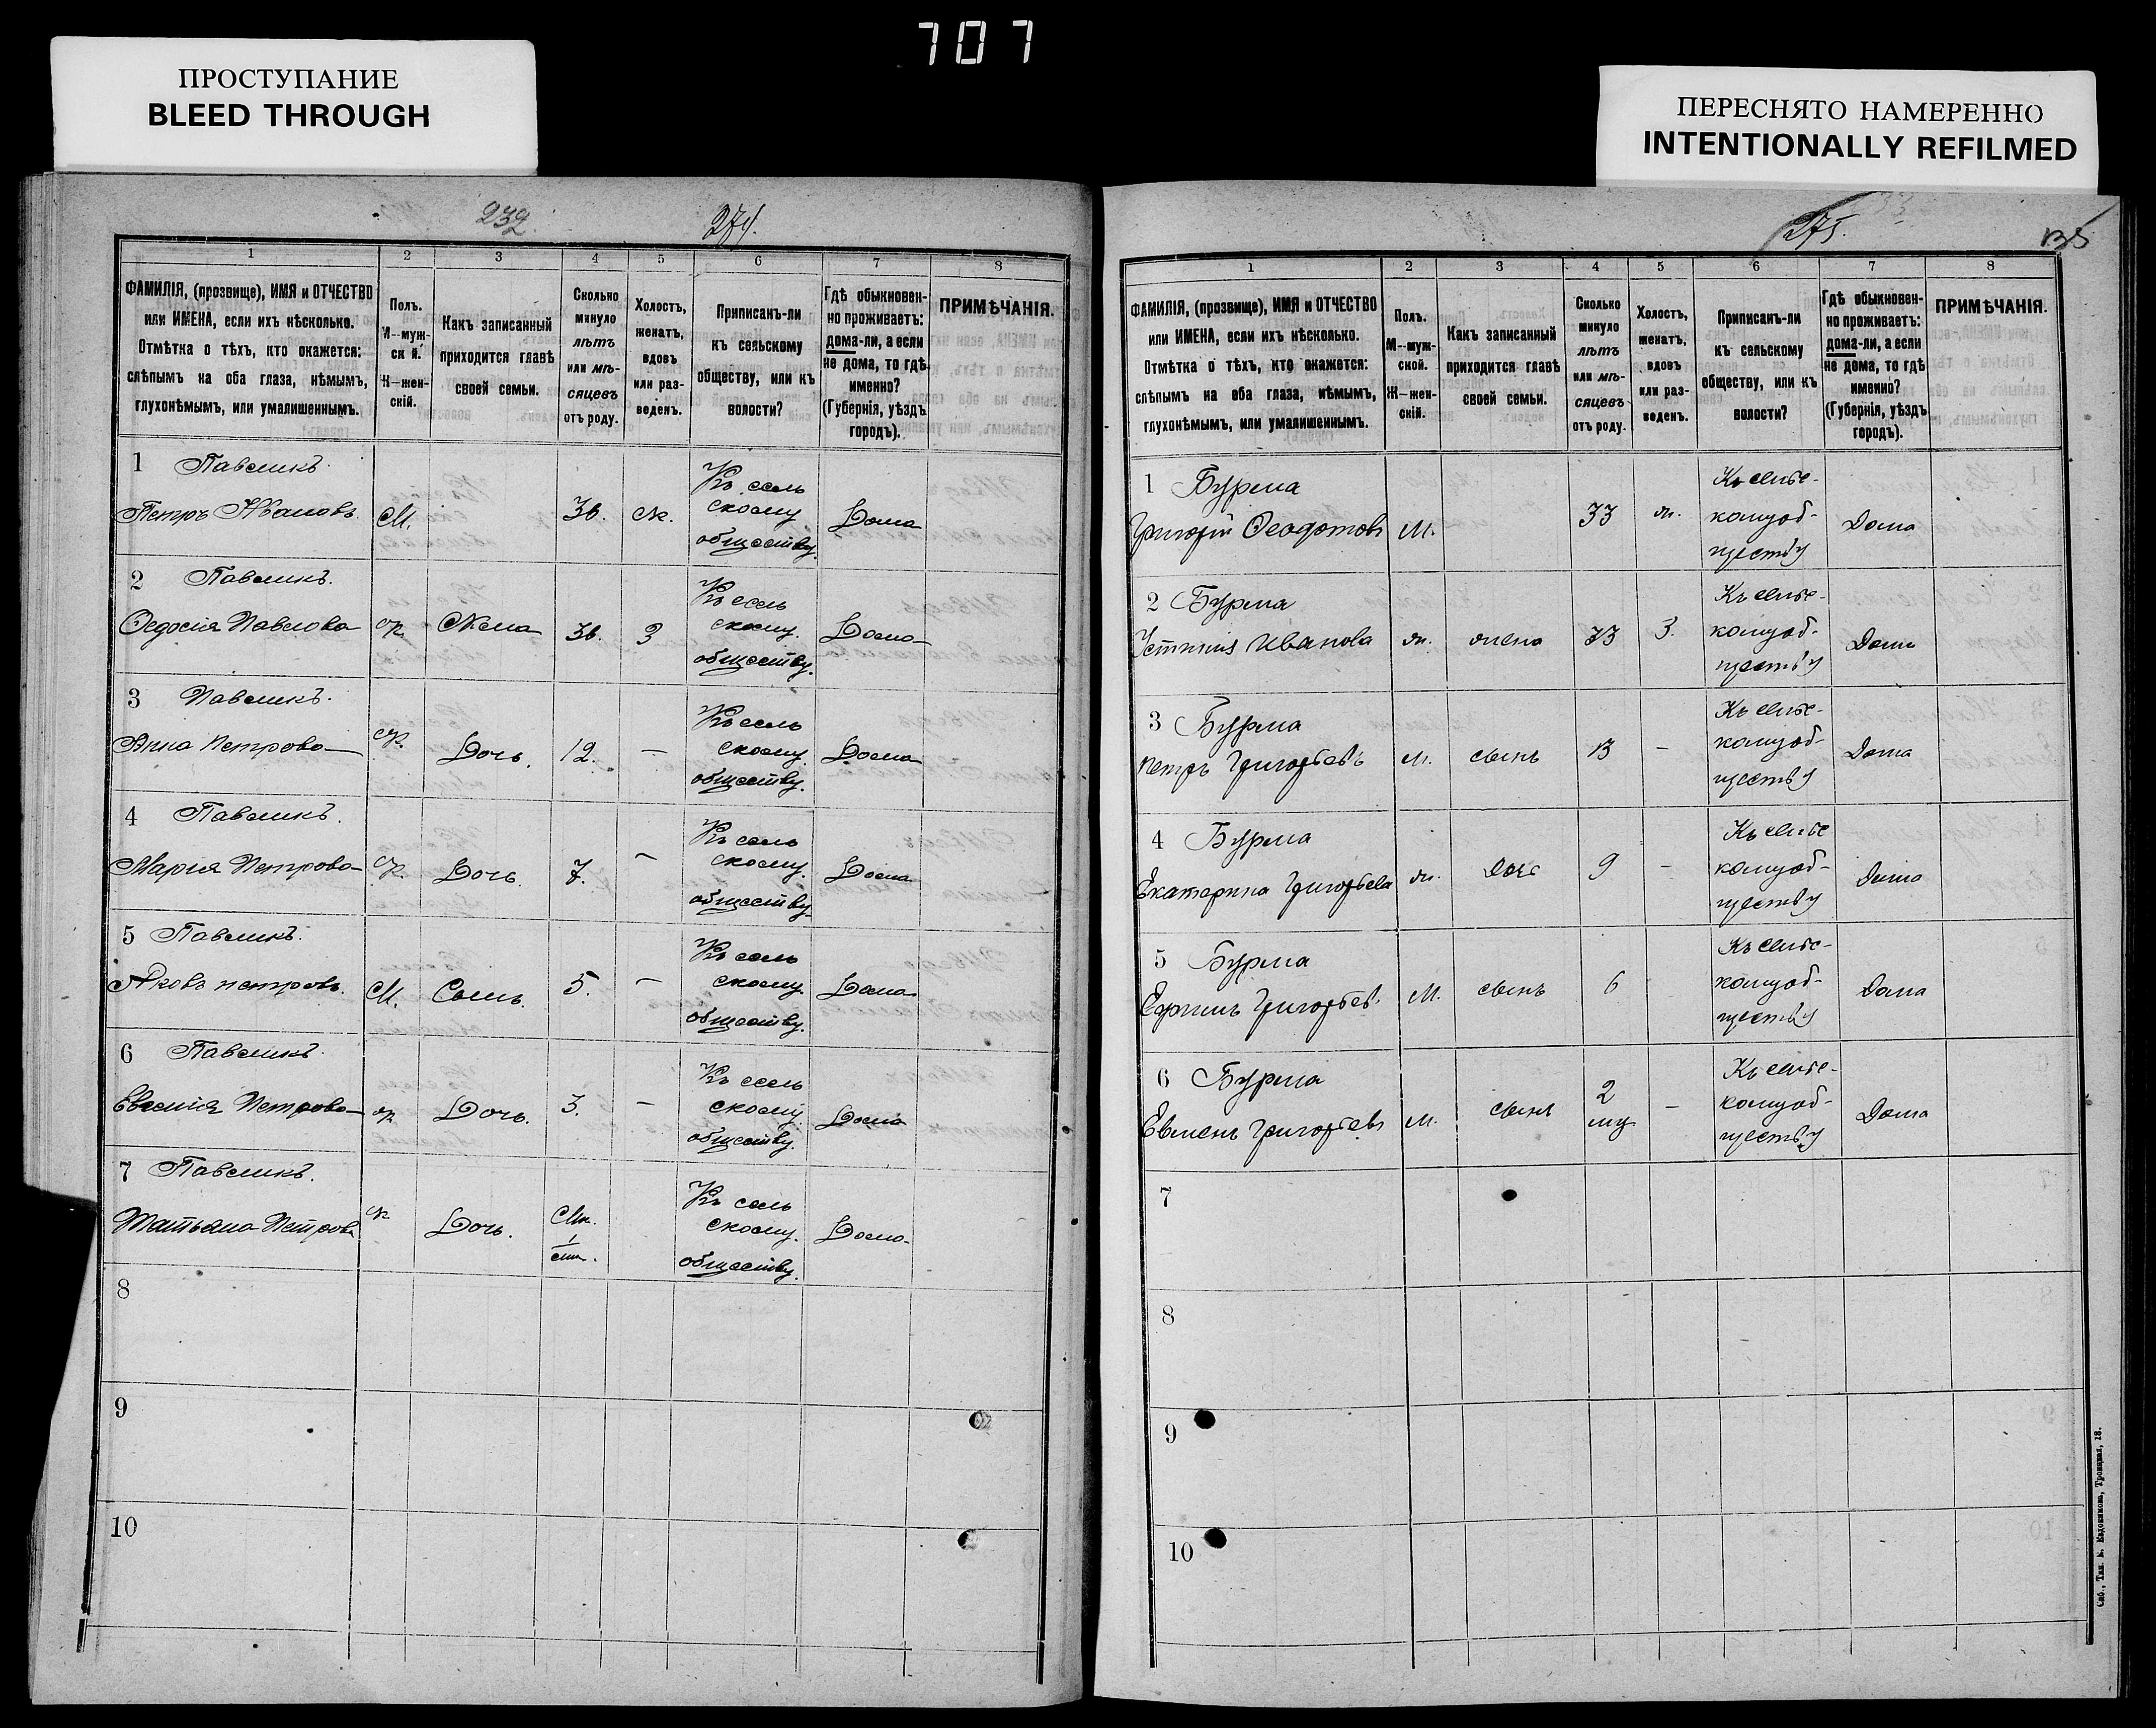 707
ПРОСТУПАНИЕ
BLEED THROUGH
ПЕРЕСНЯТО НАМЕРЕННО
INTENTIONALLY REFILMED
232. 274.
1 2 3 4 5 6 7 8
ФАМИЛІЯ, (прозвище), ИМЯ и ОТЧЕСТВО
или ИМЕНА, если ихъ нѣсколько.
Отмѣтка о тѣхъ, кто окажется:
слѣпымъ на оба глаза, нѣмымъ,
глухонѣмымъ, или умалишеннымъ.
Полъ.
М—муж-
ск й.
Ж—жен-
скій.
Какъ записанный
приходится главѣ
своей семьи.
Сколько
минуло
лѣтъ
или мѣ-
сяцевъ
отъ роду.
Холостъ,
женатъ,
вдовъ
или раз-
веденъ.
Приписанъ-ли
къ сельскому
обществу, или къ
волости?
Гдѣ обыкновен-
но проживаетъ:
дома-ли, а если
не дома, то гдѣ
именно?
(Губернія, уѣздъ
городъ).
ПРИМѢЧАНІЯ.
1 Павликъ.
Петръ Ивановъ. М. 36. Ж. Къ сель
скому
обществу. Дома
2 Павликъ.
Ѳедосія Павлова Ж. Жена 36. З Къ сель
скому.
обществу. Дома
3 Павликъ.
Анна Петрова Ж. Дочь. 12. — Къ сель
скому.
обществу. Дома
4 Павликъ.
Марія Петрова Ж. Дочь. 7. — Къ сель
скому.
обществу. Дома
5 Павликъ.
Яковъ петровъ. М. Сынъ. 5. — Къ сель
скому
обществу. Дома
6 Павликъ.
Петрова Ж Дочь. 3. — Къ сель
скому.
обществу. Дома
7 Павликъ.
Татьяна Петрова Ж Дочь. 1 Къ сель
скому.
обществу. Дома
8
9
10
275. 138
1 2 3 4 5 6 7 8
ФАМИЛІЯ, (прозвище), ИМЯ и ОТЧЕСТВО
или ИМЕНА, если ихъ нѣсколько.
Отмѣтка о тѣхъ, кто окажется:
слѣпымъ на оба глаза, нѣмымъ,
глухонѣмымъ, или умалишеннымъ.
Полъ.
М—муж-
ской.
Ж—жен-
скій.
Какъ записанный
приходится главѣ
своей семьи.
Сколько
минуло
лѣтъ
или мѣ-
сяцевъ
отъ роду.
Холостъ,
женатъ,
вдовъ
или раз-
веденъ.
Приписанъ-ли
къ сельскому
обществу, или къ
волости?
Гдѣ обыкновен-
но проживаетъ:
дома-ли, а если
не дома, то гдѣ
именно?
(Губернія, уѣздъ
городъ).
ПРИМѢЧАНІЯ.
1 Бурма
Григорій Ѳеодотовъ М. 33 ж. Къ сельс-
комуоб-
ществу Дома
2 Бурма
Устинія Иванова ж. жена 33 З. Къ сельс-
комуоб-
ществу Дома
3 Бурма
Петръ Григорьевъ М. сынъ 13 — Къ сельс-
комуоб-
ществу Дома
4 Бурма
Екатерина Григорьева ж. дочь 9 — Къ сельс
комуоб-
ществу Дома
5 Бурма
Ефримъ Григорьев. М. сынъ 6 - Къ сельс-
комуоб-
ществу Дома
6 Бурма
Евменъ Григорьевъ М. сынъ 2 — Къ сельс-
комуоб-
ществу Дома
7
8
9
10